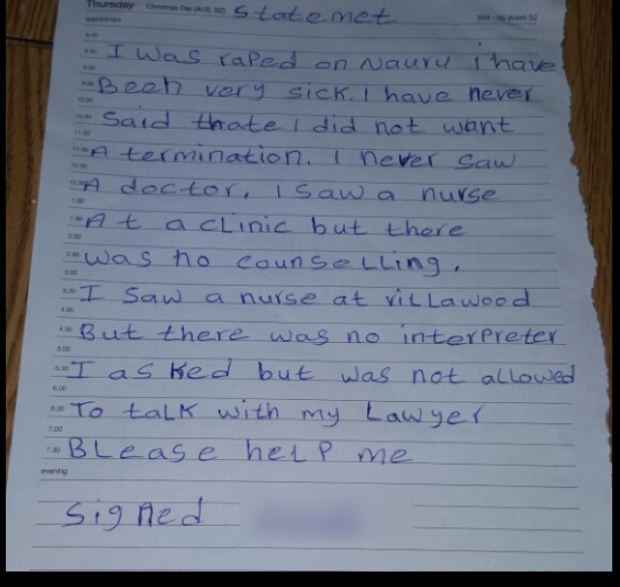 Thursday Christmas Day (AUS, NZ) statemet
I was raped on Nauru i have
Been very sick. I have never
Said thate I did not want
A termination. I never saw
A doctor, I saw a nurse
At a clinic but there
was no counselling.
I saw a nurse at villawood
But there was no interpreter
I asked but was not allowed
To talk with my Lawyer
7.00
7.30 BLease help me
evening
signed